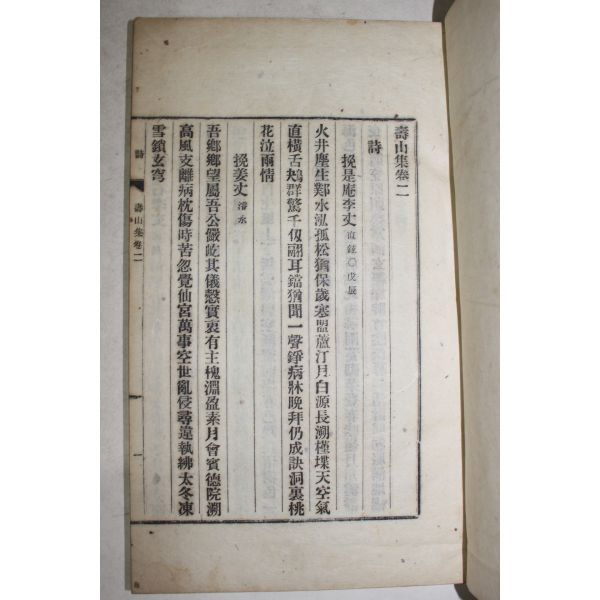 壽山集卷二
詩
挽是庵李丈 直鉉○戊辰
火井塵生鄴水泓孤松猶保歲寒盟蘆汀月白源長溯槿堞天空氣
直橫舌鴂群驚千仭翮耳鐺猶聞一聲錚病牀晩拜仍成訣洞裏桃
花泣雨情
挽姜丈 濬永
吾鄉鄉望屬吾公儼屹其儀慤實衷有主槐淵盈素月會賓德院溯
高風支離病枕傷時苦忽覺仙宮萬事空世亂侵尋違執紼太冬凍
雪鎖玄穹
詩 壽山集卷二 一